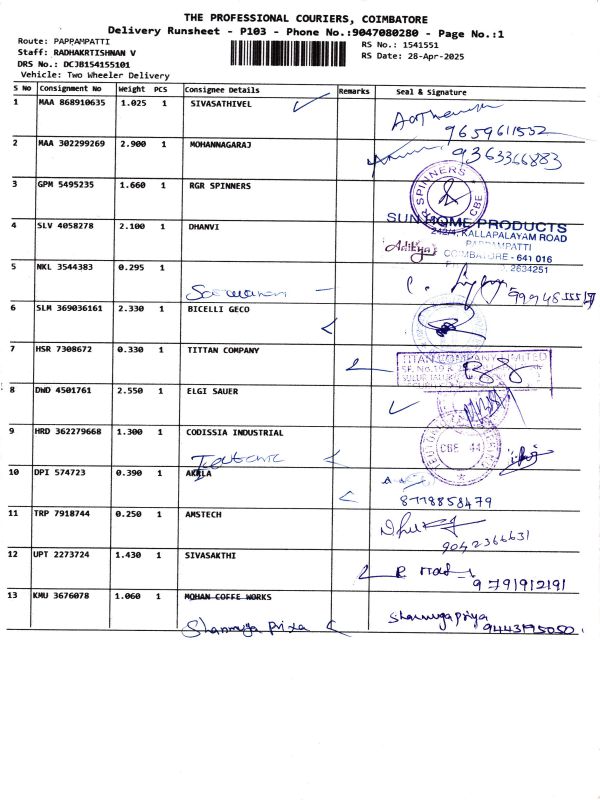 THE PROFESSIONAL COURIERS, COIMBATORE
Delivery Runsheet - P103 - Phone No.:9047080280 - Page No.:1
Route: PAPPAMPATTI
Staff: RADHAKRTISHNAN V
DRS No.: DCJB154155101
Vehicle: Two Wheeler Delivery
RS No.: 1541551
RS Date: 28-Apr-2025
S No Consignment No Weight PCS Consignee Details Remarks Seal & Signature
1 MAA 868910635 1.025 1 SIVASATHIVEL
9659611532
2 MAA 302299269 2.900 1 MOHANNAGARAJ
9363366883
3 GPM 5495235 1.660 1 RGR SPINNERS
SPINNERS
CBE
4 SLV 4058278 2.100 1 DHANVI
SUN HOME PRODUCTS
242/4, KALLAPALAYAM ROAD
PAPPAMPATTI
Adithya
COIMBATORE - 641 016
2634251
5 NKL 3544383 0.295 1
Saravanan
6 SLM 369036161 2.330 1 BICELLI GECO
7 HSR 7308672 0.330 1 TITTAN COMPANY
TITAN COMPANY LIMITED
8 DWD 4501761 2.550 1 ELGI SAUER
9 HRD 362279668 1.300 1 CODISSIA INDUSTRIAL
CBE 44
10 DPI 574723 0.390 1 AKILA
8778858479
11 TRP 7918744 0.250 1 AMSTECH
9042366631
12 UPT 2273724 1.430 1 SIVASAKTHI
9791912191
13 KMU 3676078 1.060 1 MOHAN COFFE WORKS
Shanmuga Priya
Shanmugapriya
9443195050